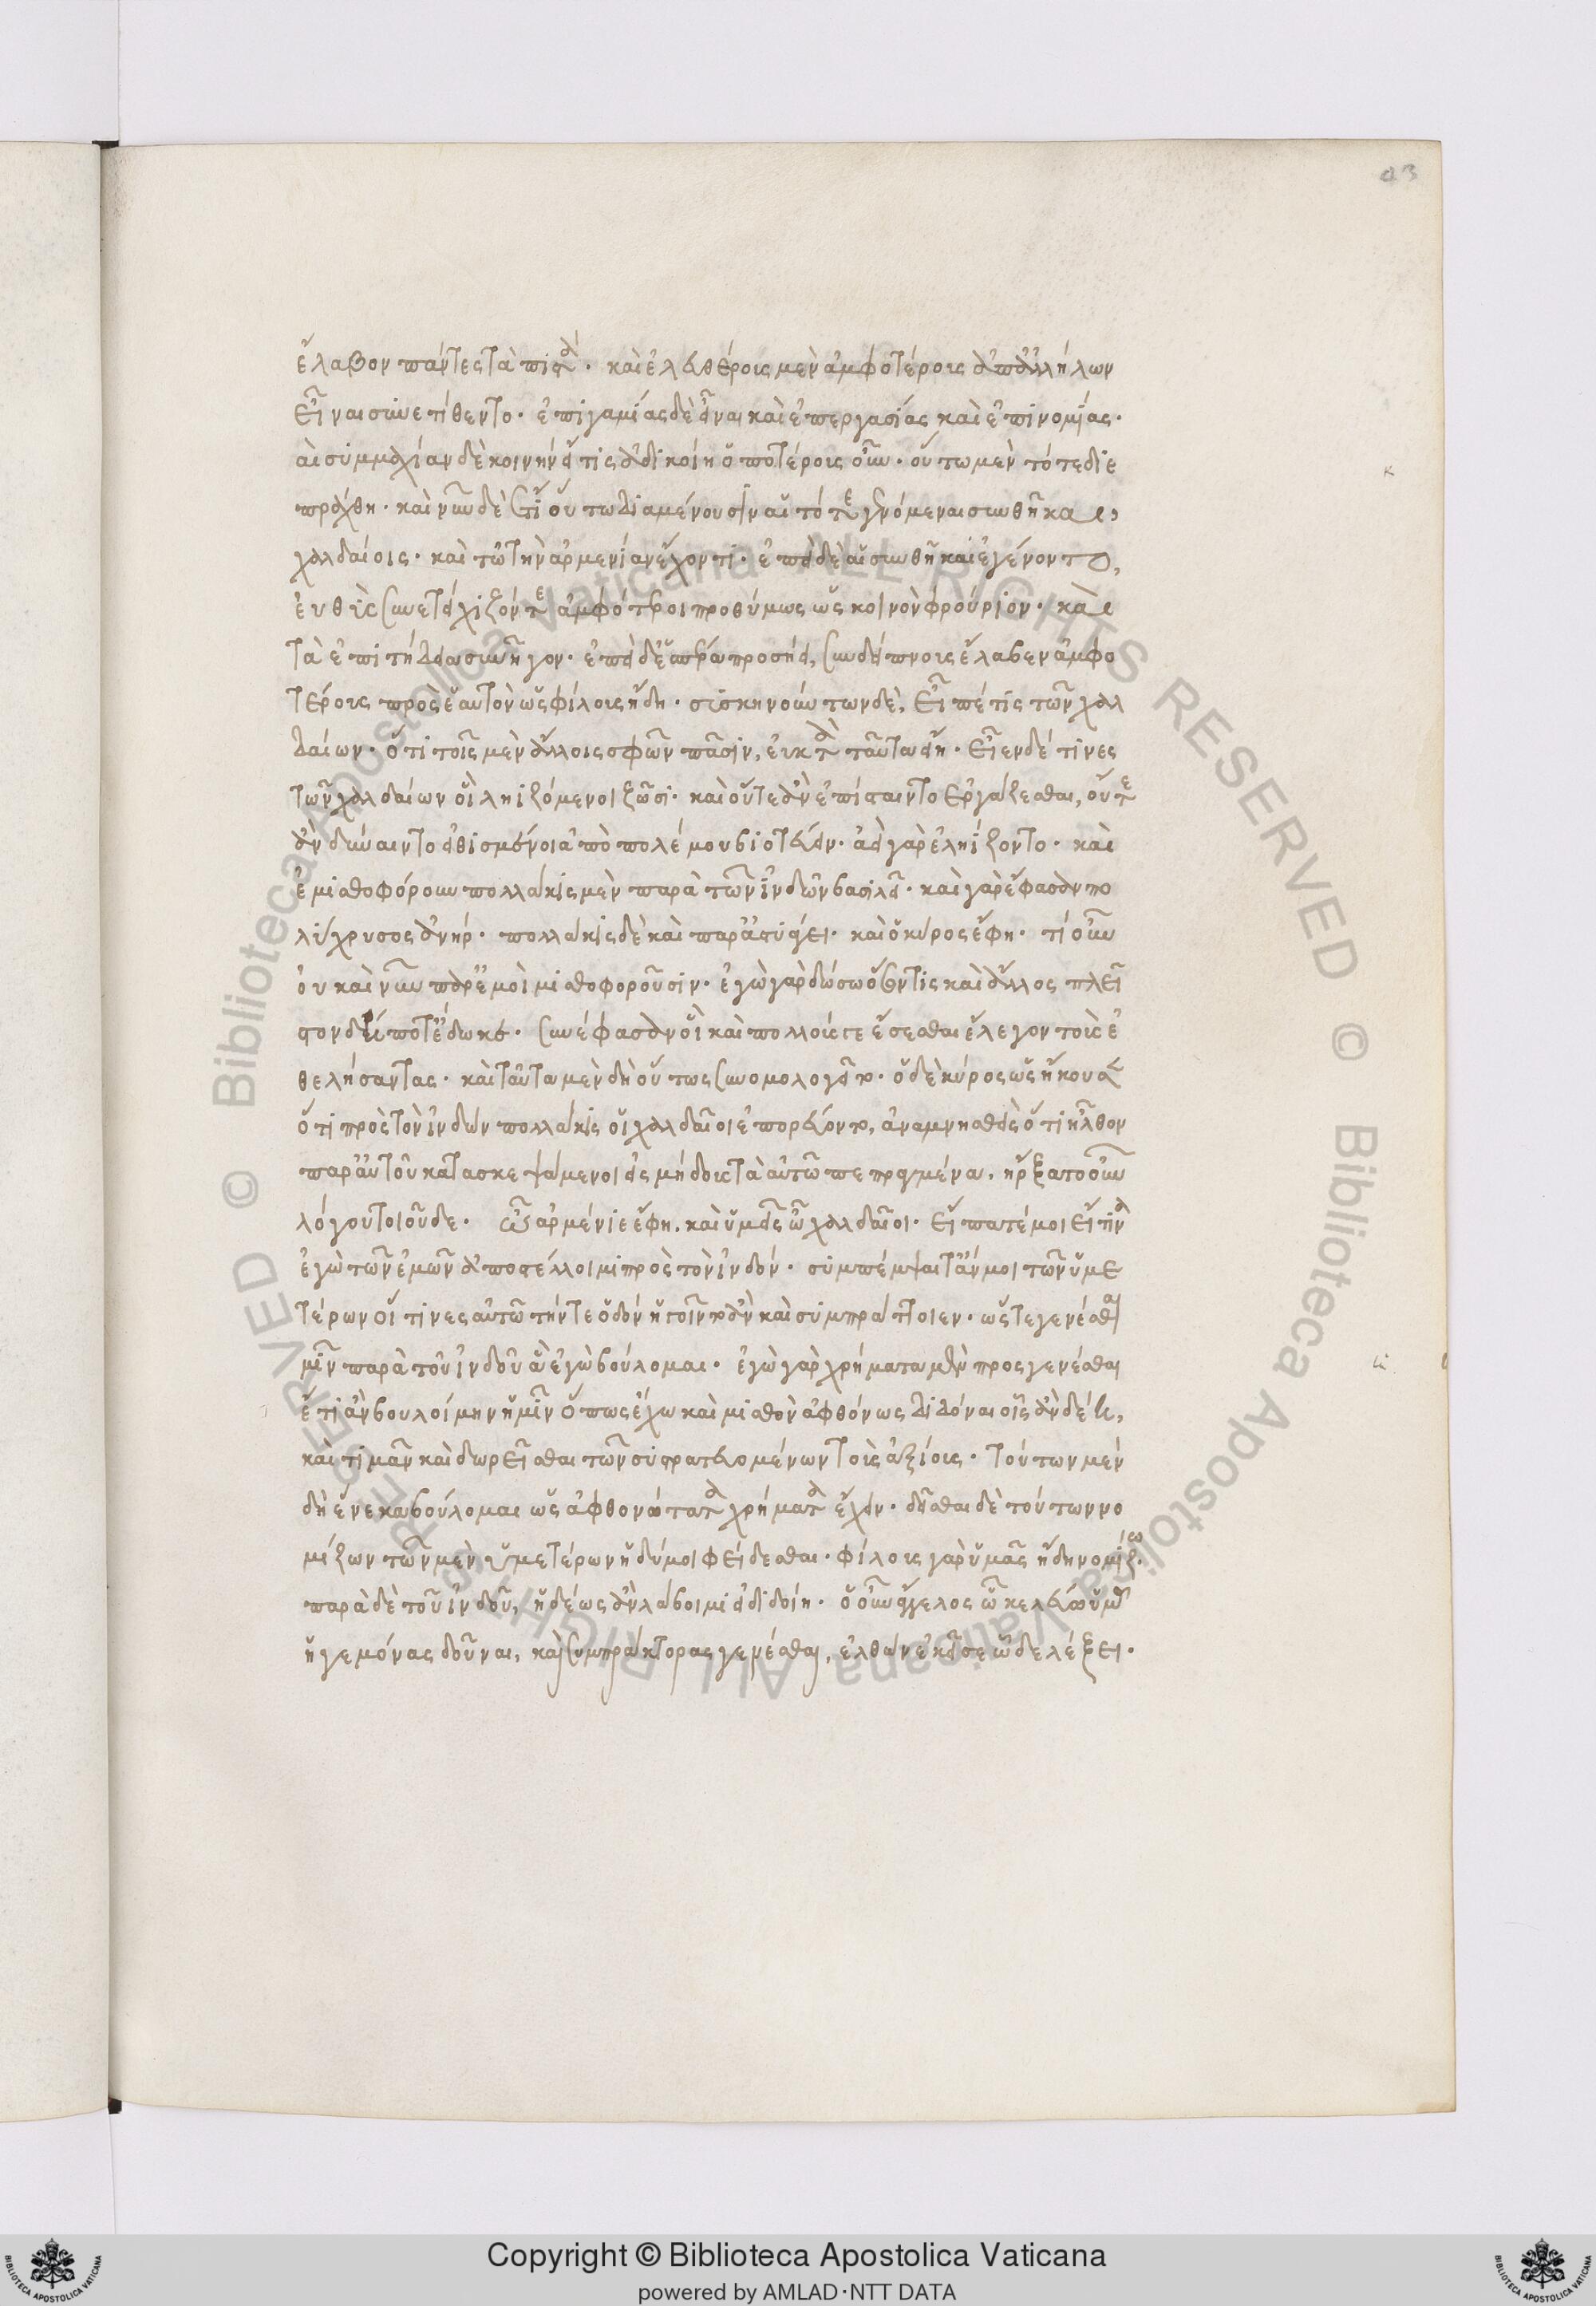 93
ἔλαβον πάντες τὰ πιστά· καὶ ἐλευθέροις μὲν ἀμφοτέροις ἀπ' ἀλλήλων
εἶναι συνετίθεντο· ἐπιγαμίας δὲ εἶναι καὶ ἐπεργασίας καὶ ἐπινομίας·
αι συμμαχίαν δὲ κοινὴν εἴ τις ἀδικοίη ὁποτέροις οὖν· οὕτω μὲν τότε διε
πράχθη· καὶ νῦν δὲ ἔτι οὕτω διαμένουσιν αἱ τότε γενόμεναι συνθῆκαι,
χαλδαίοις· καὶ τῶ τὴν ἀρμενίαν ἔχοντι· ἐπεὶ δὲ αἱ συνθῆκαι ἐγένοντο,
εὐθὺς συνετείχιζόν τε ἀμφότεροι προθύμως ὡς κοινὸν φρούριον· καὶ
τὰ ἐπιτήδεια συνῆγον· ἐπεὶ δ' ἑσπέρα προσήει, συνδείπνοις ἔλαβεν ἀμφο
τέροις πρὸς ἑαυτὸν ὡς φίλοις ἤδη· συσκηνούντων δὲ, εἶπέ τις τῶν χαλ
δαίων· ὅτι τοῖς μὲν ἄλλοις σφῶν πᾶσιν, εὐκτὰ ταῦτα εἴη· εἶεν δέ τινες
τῶν χαλδαίων οἳ ληιζόμενοι ζῶσι· καὶ οὔτε ἂν ἐπίσταιντο ἐργάζεσθαι, οὔτε
ἂν δύναιντο εἰθισμένοι ἀπὸ πολέμου βιοτεύειν· ἀεὶ γὰρ ἐληίζοντο· καὶ
ἐμισθοφόρουν πολλάκις μὲν παρὰ τῶν ἰνδῶν βασιλεῖ· καὶ γὰρ ἔφασαν πο
λύχρυσος ἀνήρ· πολλάκις δὲ καὶ παρ' ἀστυάγει· καὶ ὁ κῦρος ἔφη· τί οὖν
οὐ καὶ νῦν παρ' ἐμοὶ μισθοφοροῦσιν· ἐγὼ γὰρ δώσω ὅσον τις καὶ ἄλλος πλεῖ
στον δήποτ' ἔδωκε· συνέφασάν οἱ καὶ πολλούς γε ἔσεσθαι ἔλεγον τοὺς ἐ
θελήσαντας· καὶ ταῦτα μὲν δὴ οὕτως συνομολογεῖτο· ὁ δὲ κῦρος ὡς ἤκουσεν
ὅτι πρὸς τὸν ἰνδὸν πολλάκις οἱ χαλδαῖοι ἐπορεύοντο, ἀναμνησθεὶς ὅτι ἦλθον
παρ' αὐτοῦ κατασκεψάμενοι εἰς μήδους τὰ αὐτῶ πεπραγμένα, ἤρξατο οὖν
λόγου τοιοῦδε· ὦ ἀρμένιε ἔφη, καὶ ὑμεῖς ὦ χαλδαῖοι· εἴπατέ μοι εἴ τινα
ἐγὼ τῶν ἐμῶν ἀποστέλλοιμι πρὸς τὸν ἰνδόν· συμπέμψαιτ' ἄν μοι τῶν ὑμε
τέρων οἵ τινες αὐτῶ τήν τε ὁδὸν ἡγοῖντο ἂν καὶ συμπράττοιεν· ὥστε γενέσθαι
μῖν παρὰ τοῦ ἰνδοῦ ἃ ἐγὼ βούλομαι· ἐγὼ γὰρ χρήματα μὲν προσγενέσθαι
ἔτι ἂν βουλοίμην ἡμῖν ὅπως ἔχω καὶ μισθὸν ἀφθόνως διδόναι οἷς ἂν δέη,
καὶ τιμᾶν καὶ δωρεῖσθαι τῶν συστρατευομένων τοὺς ἀξίους· τούτων μὲν
δὴ ἕνεκα βούλομαι ὡς ἀφθονώτατα χρήματα ἔχειν· δεῖσθαι δὲ τούτων νο
μίζων τῶν μὲν ὑμετέρων ἡδύ μοι φείδεσθαι· φίλους γὰρ ὑμᾶς ἤδη νομίζω
παρὰ δὲ τοῦ ἰνδοῦ, ἡδέως ἂν λάβοιμι εἰ διδοίη· ὁ οὖν ἄγγελος ὧ κελεύω ὑμᾶς
ἡγεμόνας δοῦναι, καὶ συμπράκτορας γενέσθαι, ἐλθὼν ἐκεῖσε ὧδε λέξει·
Copyright © Biblioteca Apostolica Vaticana
powered by AMLAD·NTT DATA